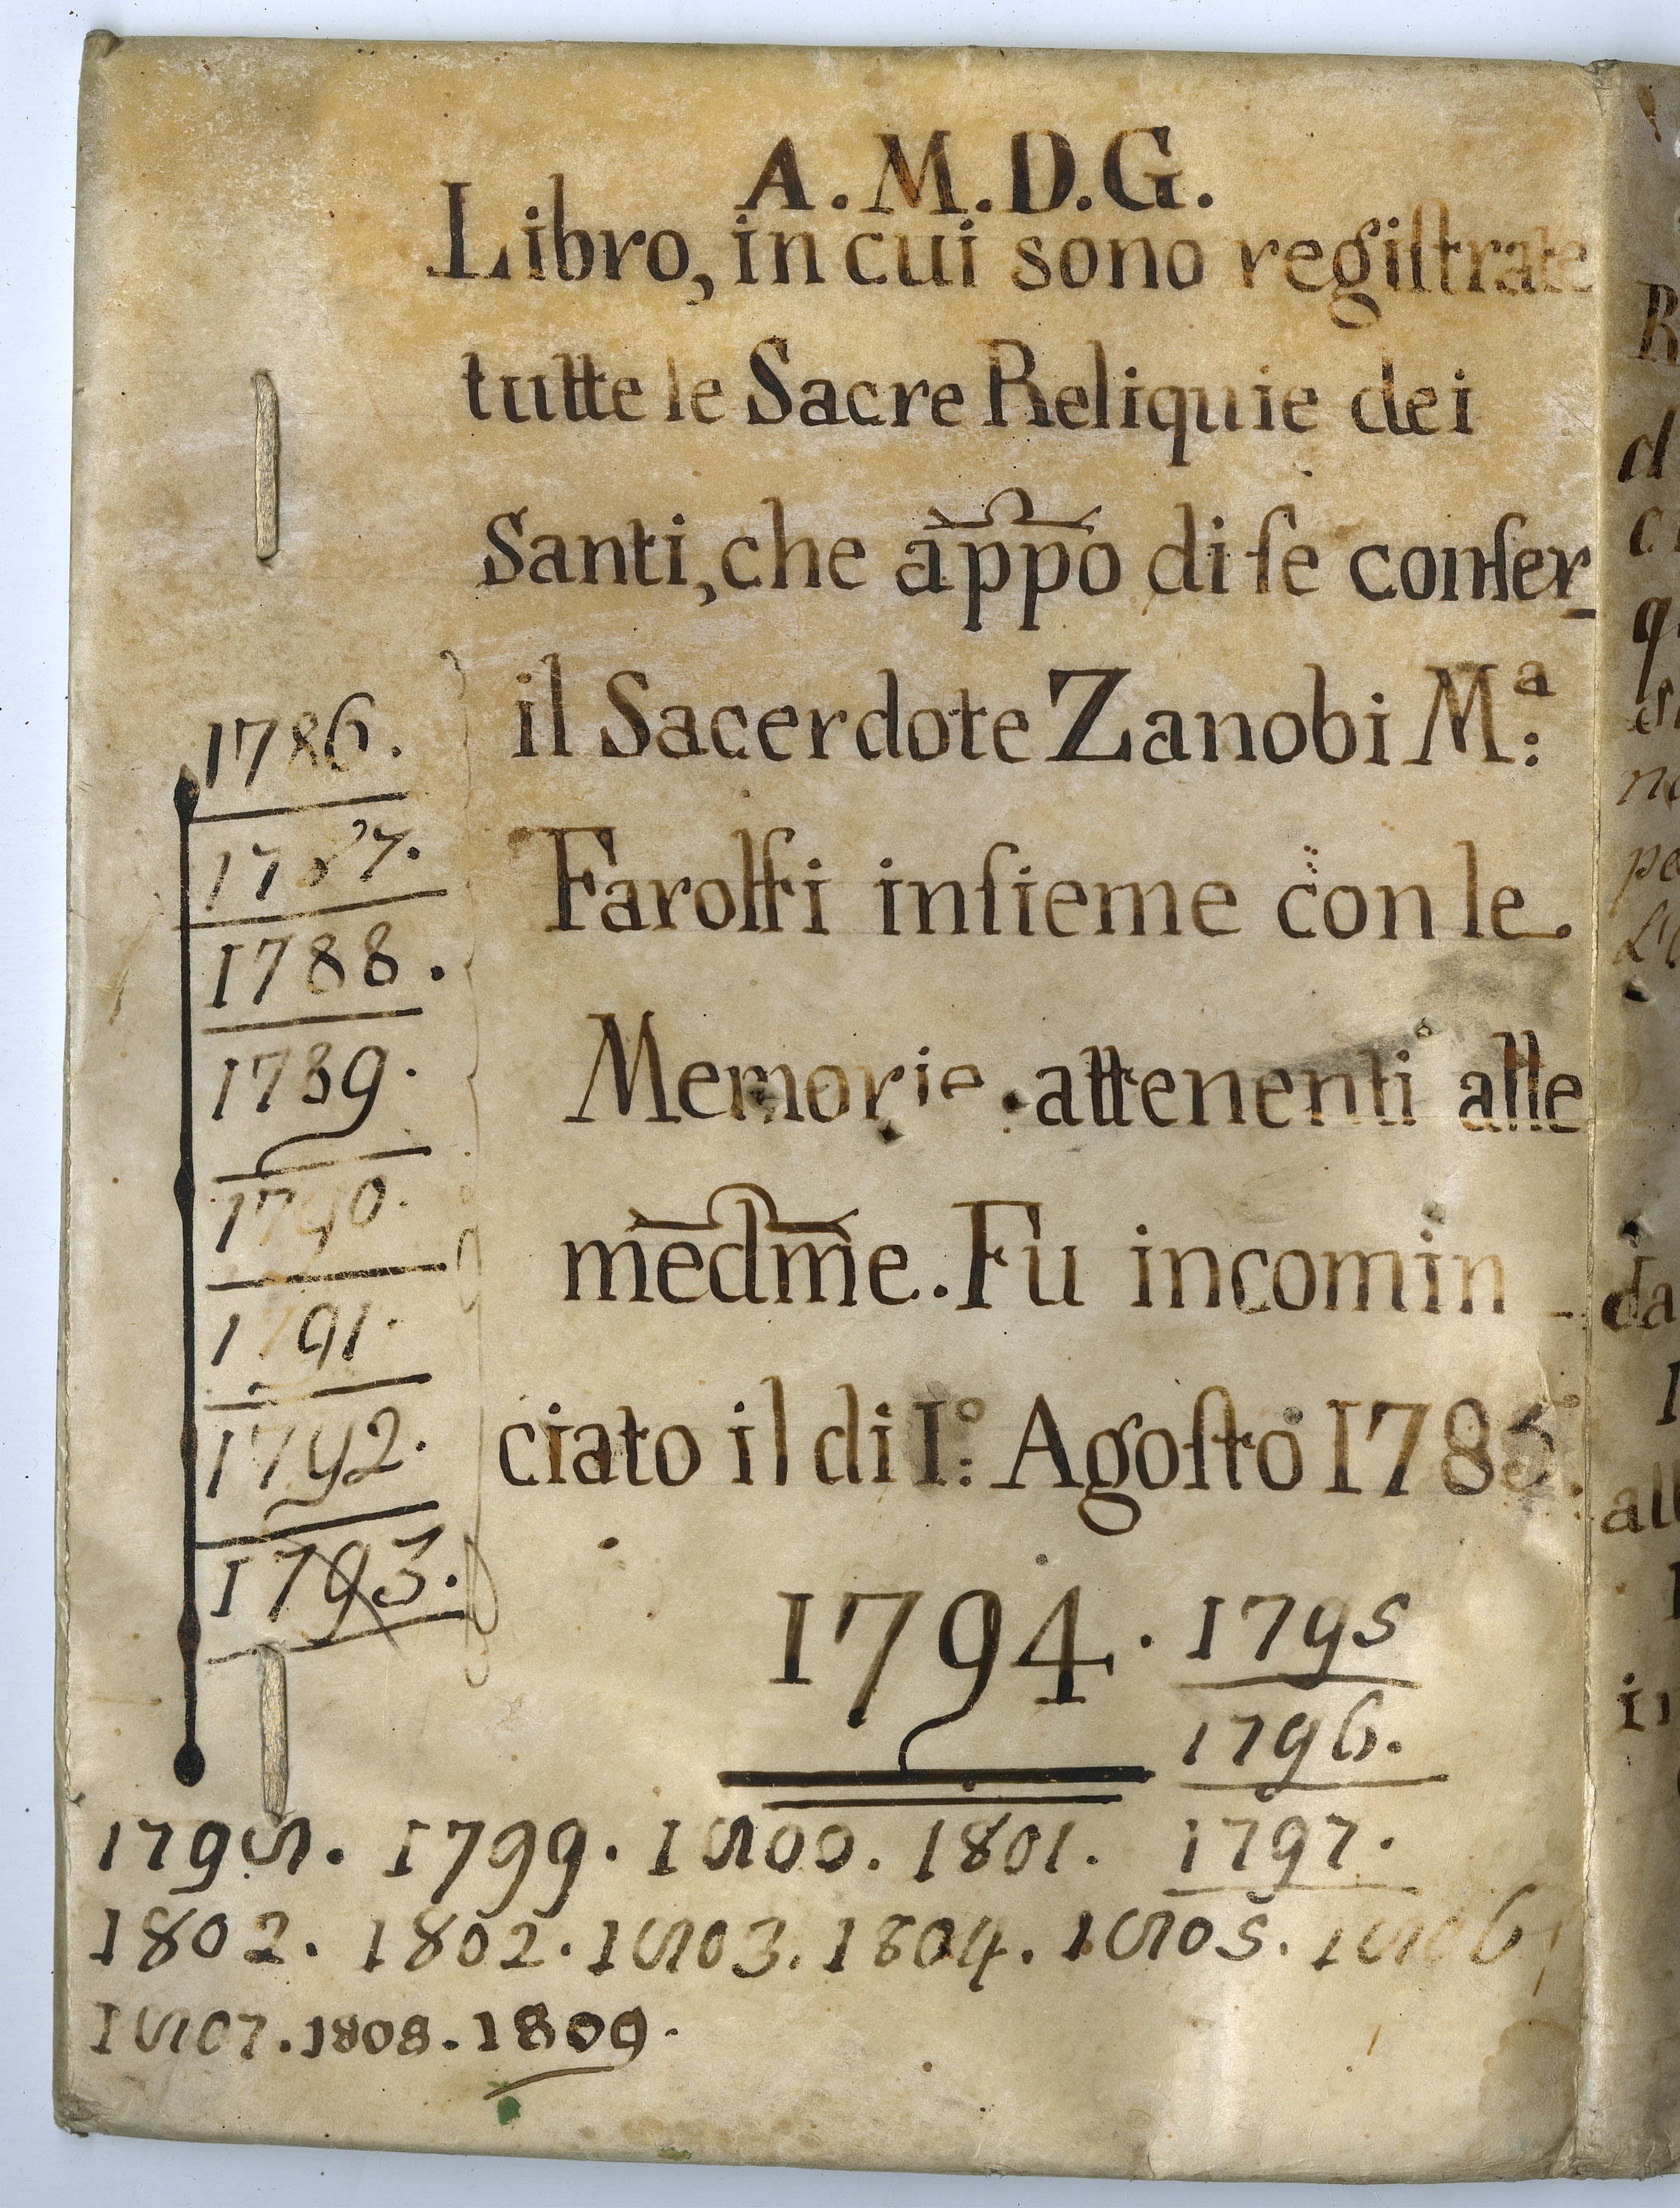 A.M.D.G.
Libro, in cui sono regiſtrate
tutte le Sacre Reliquie dei
Santi, che appo di ſe conſer-
il Sacerdote Zanobi M:ª
Farolfi inſieme con le
Memorie attenenti alle
medme. Fù incomin-
ciato il di I:º Agoſto 1785.
1786.
1787.
1788.
1789.
1790.
1791.
1792.
1793.
1794. 1795
1796.
1797.
1798. 1799. 1800. 1801.
1802. 1802. 1803. 1804. 1805. 1806
1807. 1808. 1809.